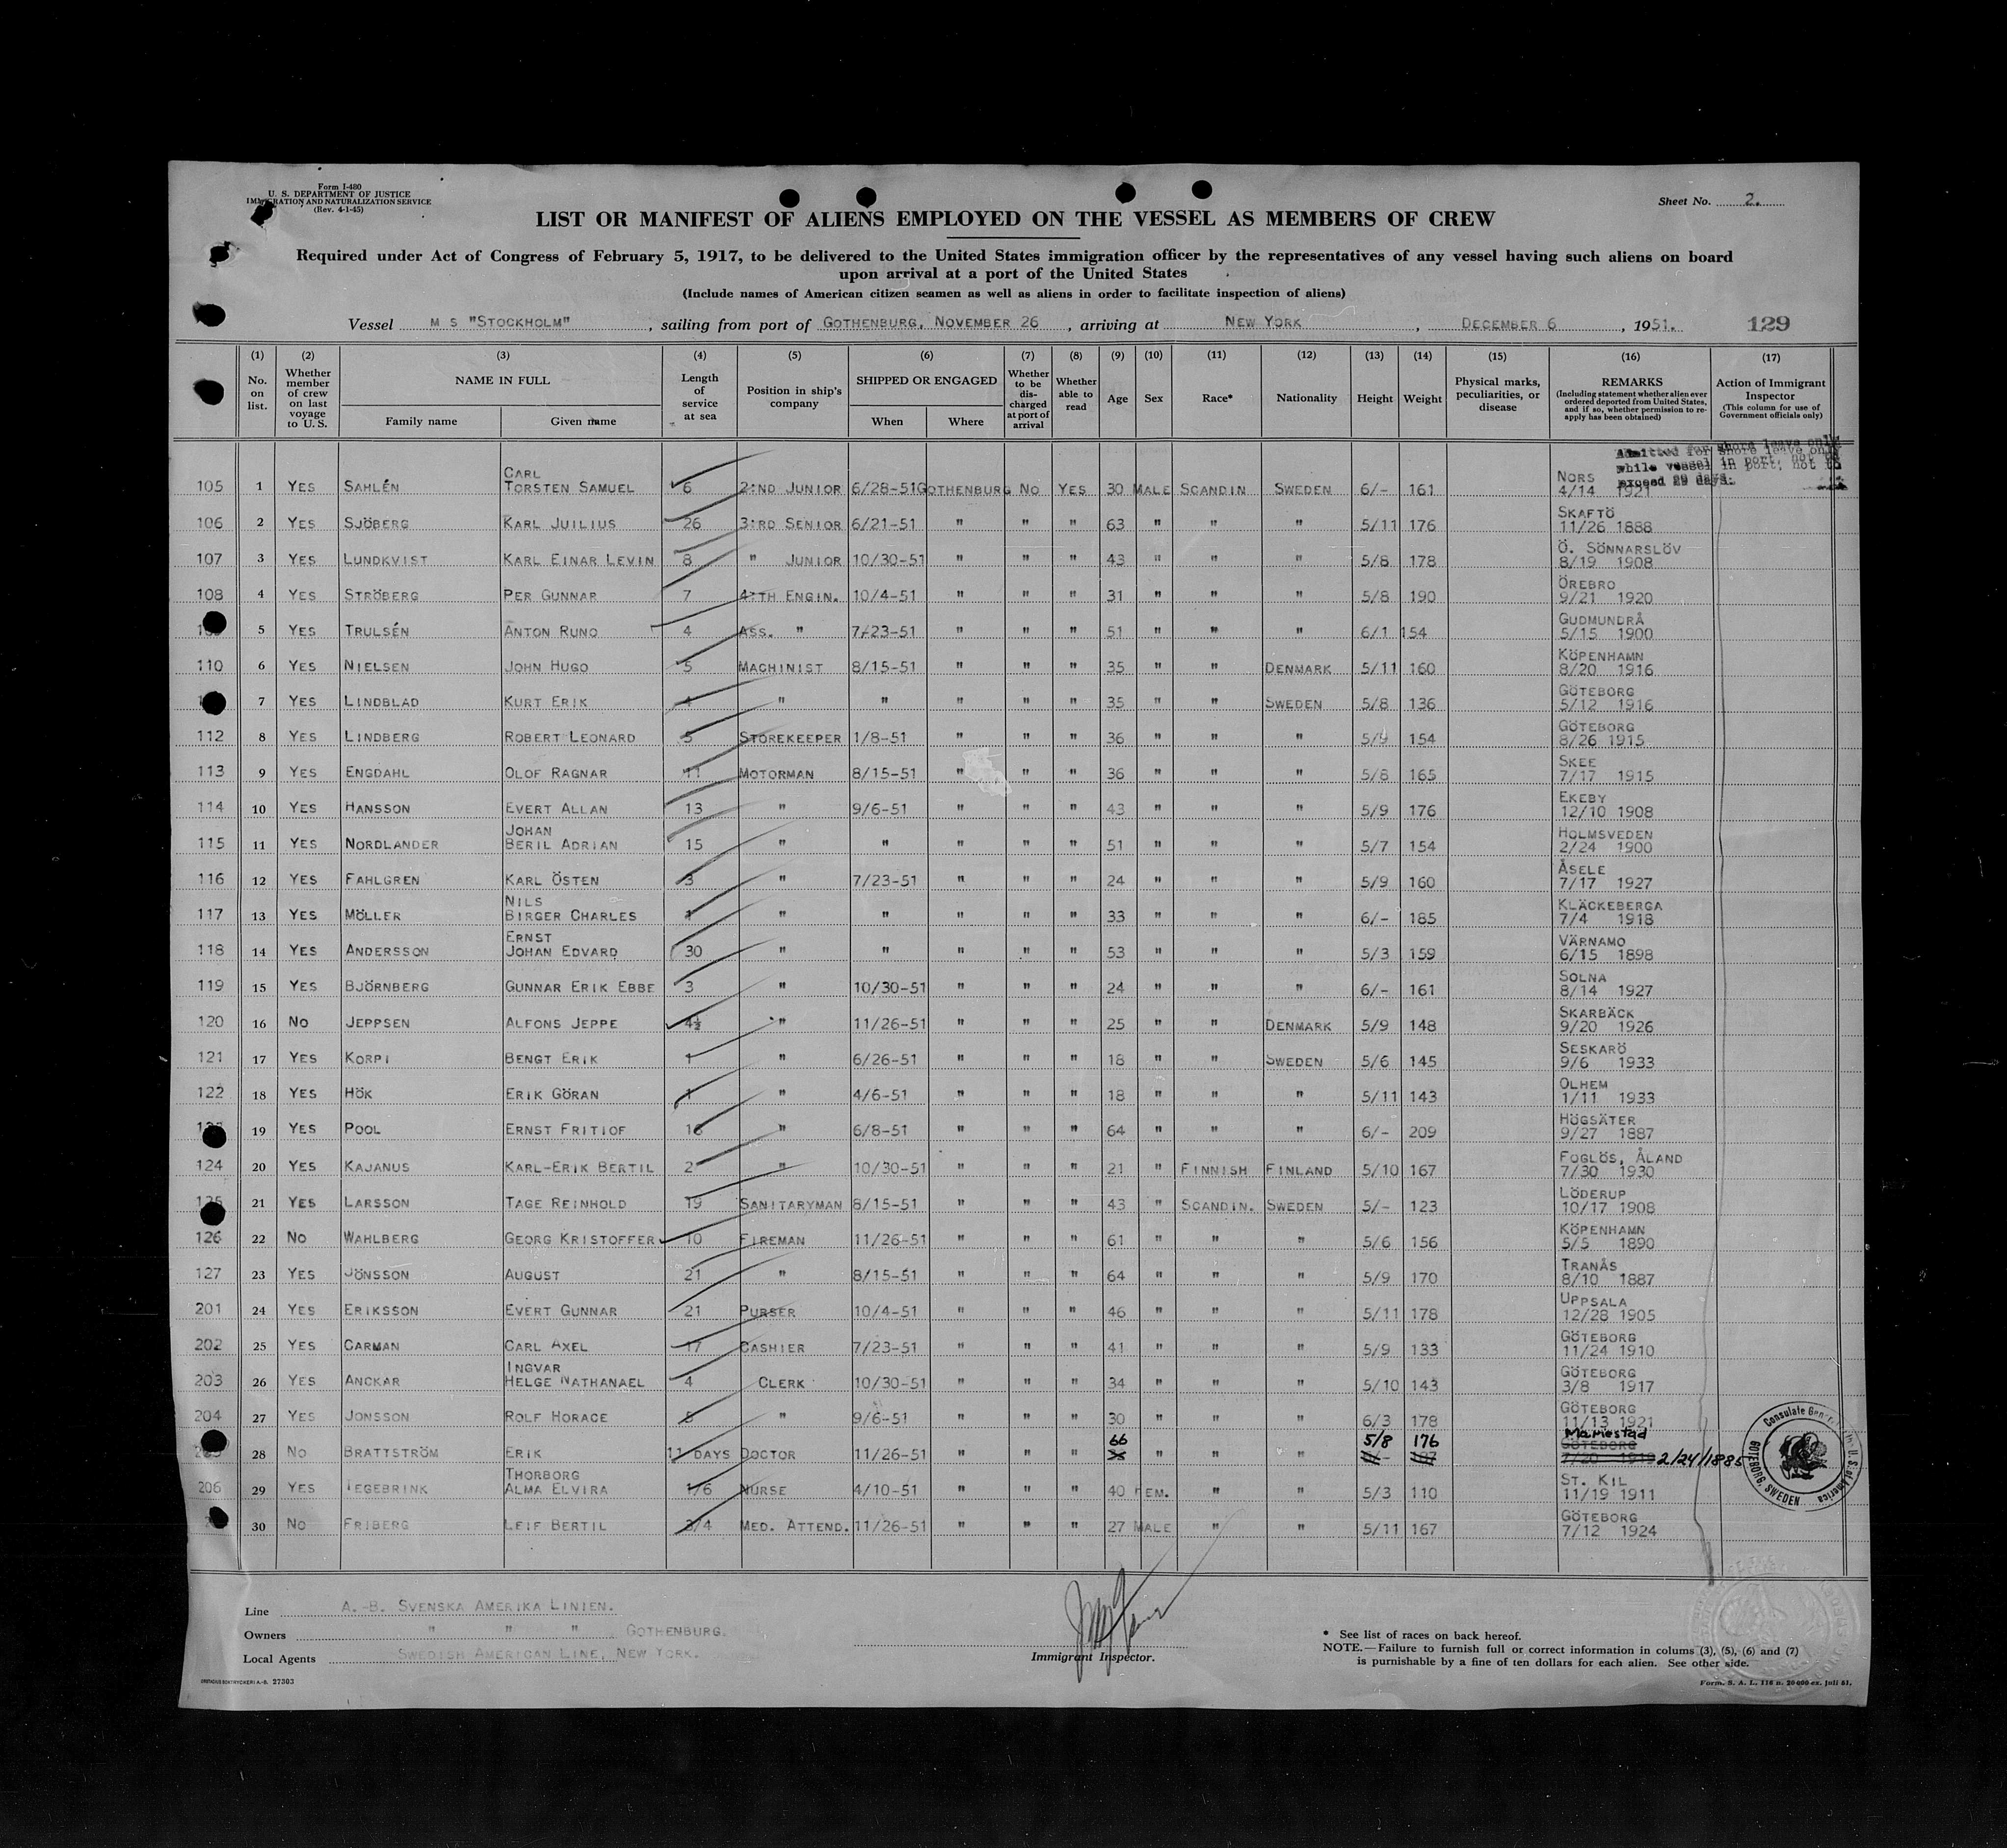 Form I-480
U. S. DEPARTMENT OF JUSTICE
IMMIGRATION AND NATURALIZATION SERVICE
(Rev. 4-1-45)
Sheet No. 2.
LIST OR MANIFEST OF ALIENS EMPLOYED ON THE VESSEL AS MEMBERS OF CREW
Required under Act of Congress of February 5, 1917, to be delivered to the United States immigration officer by the representatives of any vessel having such aliens on board
upon arrival at a port of the United States
(Include names of American citizen seamen as well as aliens in order to facilitate inspection of aliens)
Vessel M S "STOCKHOLM", sailing from port of GOTHENBURG, NOVEMBER 26, arriving at NEW YORK, DECEMBER 6, 1951. 129
(1) No. on list. (2) Whether member of crew on last voyage to U. S. (3) NAME IN FULL Family name Given name (4) Length of service at sea (5) Position in ship's company (6) SHIPPED OR ENGAGED When Where (7) Whether to be discharged at port of arrival (8) Whether able to read (9) Age (10) Sex (11) Race* (12) Nationality (13) Height (14) Weight (15) Physical marks, peculiarities, or disease (16) REMARKS (Including statement whether alien ever ordered deported from United States, and if so, whether permission to reapply has been obtained) (17) Action of Immigrant Inspector (This column for use of Government officials only)
Admitted for shore leave only
while vessel in port, not to
exceed 29 days.
105 1 YES SAHLÉN CARL TORSTEN SAMUEL 6 2:ND JUNIOR 6/28-51 GOTHENBURG NO YES 30 MALE SCANDIN SWEDEN 6/- 161 NORS 4/14 1921
106 2 YES SJÖBERG KARL JUILIUS 26 3:RD SENIOR 6/21-51 " " " 63 " " " 5/11 176 SKAFTÖ 11/26 1888
107 3 YES LUNDKVIST KARL EINAR LEVIN 8 " JUNIOR 10/30-51 " " " 43 " " " 5/8 178 Ö. SÖNNARSLÖV 8/19 1908
108 4 YES STRÖBERG PER GUNNAR 7 4:TH ENGIN. 10/4-51 " " " 31 " " " 5/8 190 ÖREBRO 9/21 1920
5 YES TRULSÉN ANTON RUNO 4 ASS. " 7/23-51 " " " 51 " " " 6/1 154 GUDMUNDRÅ 5/15 1900
110 6 YES NIELSEN JOHN HUGO 5 MACHINIST 8/15-51 " " " 35 " " DENMARK 5/11 160 KÖPENHAMN 8/20 1916
7 YES LINDBLAD KURT ERIK 4 " " " " " 35 " " SWEDEN 5/8 136 GÖTEBORG 5/12 1916
112 8 YES LINDBERG ROBERT LEONARD 5 STOREKEEPER 1/8-51 " " " 36 " " " 5/9 154 GÖTEBORG 8/26 1915
113 9 YES ENGDAHL OLOF RAGNAR 11 MOTORMAN 8/15-51 " " " 36 " " " 5/8 165 SKEE 7/17 1915
114 10 YES HANSSON EVERT ALLAN 13 " 9/6-51 " " " 43 " " " 5/9 176 EKEBY 12/10 1908
115 11 YES NORDLANDER JOHAN BERIL ADRIAN 15 " " " " " 51 " " " 5/7 154 HOLMSVEDEN 2/24 1900
116 12 YES FAHLGREN KARL ÖSTEN 3 " 7/23-51 " " " 24 " " " 5/9 160 ÅSELE 7/17 1927
117 13 YES MÖLLER NILS BIRGER CHARLES " " " " " 33 " " " 6/- 185 KLÄCKEBERGA 7/4 1918
118 14 YES ANDERSSON ERNST JOHAN EDVARD 30 " " " " " 53 " " " 5/3 159 VÄRNAMO 6/15 1898
119 15 YES BJÖRNBERG GUNNAR ERIK EBBE 3 " 10/30-51 " " " 24 " " " 6/- 161 SOLNA 8/14 1927
120 16 NO JEPPSEN ALFONS JEPPE 4½ " 11/26-51 " " " 25 " " DENMARK 5/9 148 SKARBÄCK 9/20 1926
121 17 YES KORPI BENGT ERIK 1 " 6/26-51 " " " 18 " " SWEDEN 5/6 145 SESKARÖ 9/6 1933
122 18 YES HÖK ERIK GÖRAN 1 " 4/6-51 " " " 18 " " " 5/11 143 OLHEM 1/11 1933
19 YES POOL ERNST FRITIOF 16 " 6/8-51 " " " 64 " " " 6/- 209 HÖGSÄTER 9/27 1887
124 20 YES KAJANUS KARL-ERIK BERTIL 2 " 10/30-51 " " " 21 " FINNISH FINLAND 5/10 167 FOGLÖS, ÅLAND 7/30 1930
125 21 YES LARSSON TAGE REINHOLD 19 SANITARYMAN 8/15-51 " " " 43 " SCANDIN. SWEDEN 5/- 123 LÖDERUP 10/17 1908
126 22 NO WAHLBERG GEORG KRISTOFFER 10 FIREMAN 11/26-51 " " " 61 " " " 5/6 156 KÖPENHAMN 5/5 1890
127 23 YES JÖNSSON AUGUST 21 " 8/15-51 " " " 64 " " " 5/9 170 TRANÅS 8/10 1887
201 24 YES ERIKSSON EVERT GUNNAR 21 PURSER 10/4-51 " " " 46 " " " 5/11 178 UPPSALA 12/28 1905
202 25 YES CARMAN CARL AXEL 17 CASHIER 7/23-51 " " " 41 " " " 5/9 133 GÖTEBORG 11/24 1910
203 26 YES ANCKAR INGVAR HELGE NATHANAEL 4 CLERK 10/30-51 " " " 34 " " " 5/10 143 GÖTEBORG 3/8 1917
204 27 YES JONSSON ROLF HORACE 8 " 9/6-51 " " " 30 " " " 6/3 178 GÖTEBORG 11/13 1921
28 NO BRATTSTRÖM ERIK 11 DAYS DOCTOR 11/26-51 " " " 66 " " " 5/8 176 Mariestad GÖTEBORG 2/24/1885
206 29 YES TEGEBRINK THORBORG ALMA ELVIRA 1/6 NURSE 4/10-51 " " " 40 FEM. " " 5/3 110 ST. KIL 11/19 1911
30 NO FRIBERG LEIF BERTIL 3/4 MED. ATTEND. 11/26-51 " " " 27 MALE " " 5/11 167 GÖTEBORG 7/12 1924
Consulate General U.S. of America GÖTEBORG, SWEDEN
Line A.-B. SVENSKA AMERIKA LINIEN.
Owners " " " GOTHENBURG.
Local Agents SWEDISH AMERICAN LINE, NEW YORK.
Immigrant Inspector.
* See list of races on back hereof.
NOTE.—Failure to furnish full or correct information in colums (3), (5), (6) and (7)
is punishable by a fine of ten dollars for each alien. See other side.
27303
Form. S. A. L. 116 n. 20000 ex. Juli 51.